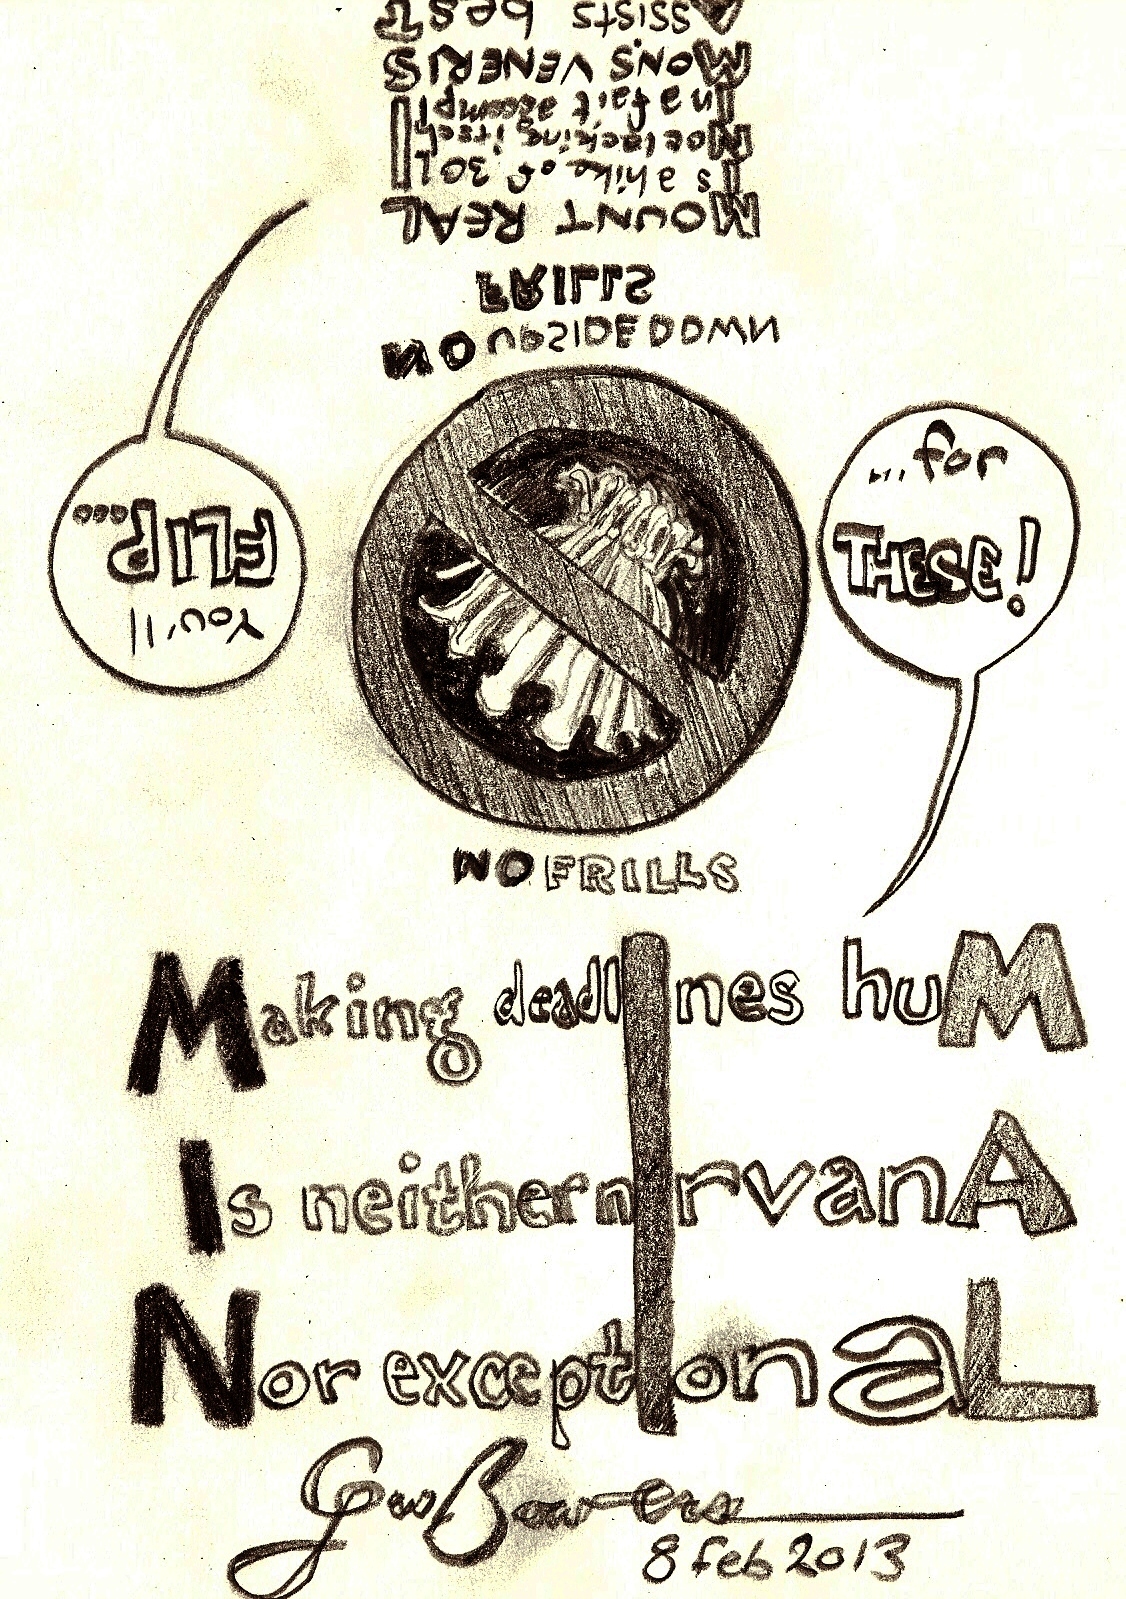 You'll
FLIP...
NO UPSIDEDOWN
FRILLS
MOUNT REAL
Is a hike of
itself
In a fait accompl I
MONS VENERIS
Assists best
...for
THESE!
NO FRILLS
Making deadlInes huM
Is neither nIrvanA
Nor exceptIonaL
8 Feb 2013